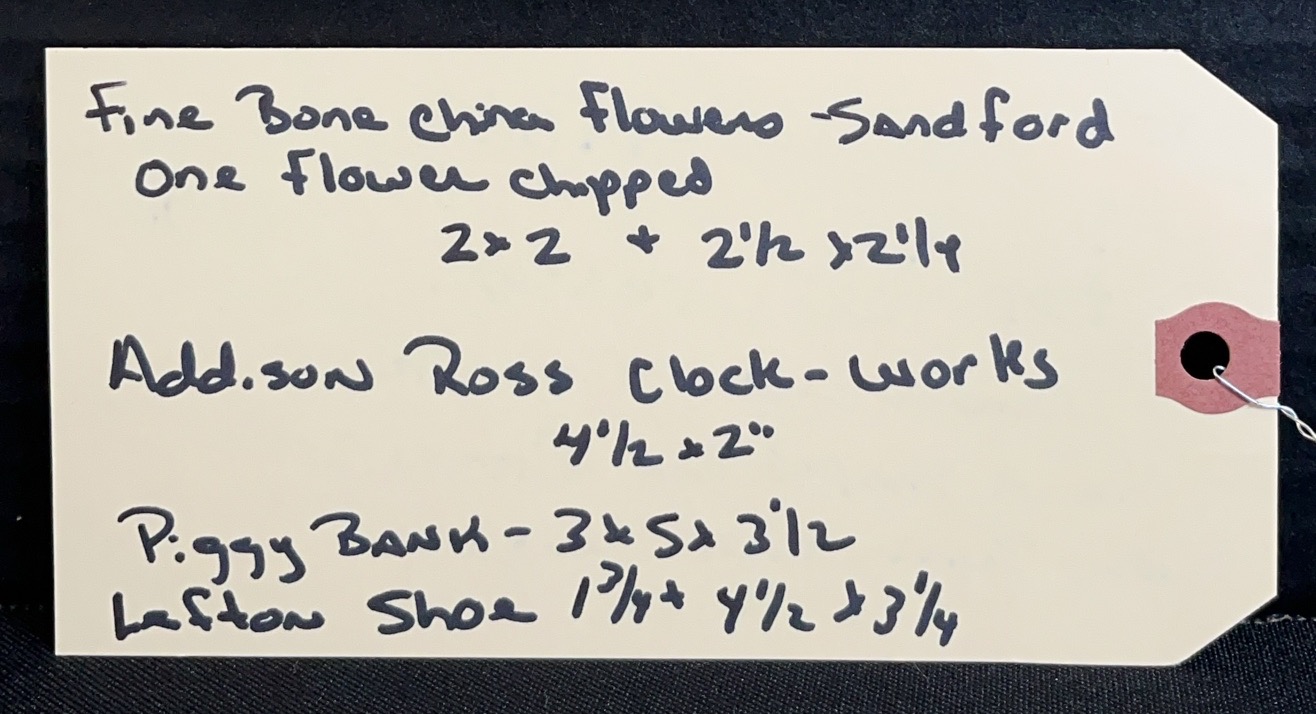 Fine Bone China Flowers - Sandford
One Flower chipped
2x2 + 2 1/2 x 2 1/4
Addison Ross Clock - works
4 1/2 x 2"
Piggy BANK - 3 x 5 x 3 1/2
Lefton Shoe 1 3/4 x 4 1/2 x 3 1/4